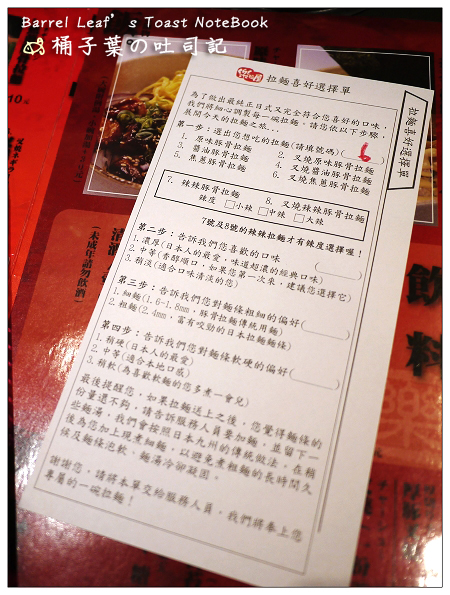 Barrel Leaf's Toast NoteBook
桶子葉の吐司記
拉麵喜好選擇單
拉麵喜好選擇單
為了做出最純正日式又完全符合您喜好的口味，
我們將細心調製每一碗拉麵，請您依以下步驟，
展開今天的拉麵之旅...
第一步：選出您想吃的拉麵(請填號碼)( 6 )
1. 原味豚骨拉麵 2. 叉燒原味豚骨拉麵
3. 醬油豚骨拉麵 4. 叉燒醬油豚骨拉麵
5. 焦蔥豚骨拉麵 6. 叉燒焦蔥豚骨拉麵
7. 辣辣豚骨拉麵 8. 叉燒辣辣豚骨拉麵
辣度 □小辣 □中辣 □大辣
7號及8號的辣辣拉麵才有辣度選擇喔！
第二步：告訴我們您喜歡的口味 ( )
1. 濃厚(日本人的最愛，味道超濃的經典口味)
2. 中等(香醇順口，如果您第一次來，建議您選擇它)
3. 稍淡(適合口味清淡的您)
第三步：告訴我們您對麵條粗細的偏好( )
1. 細麵(1.6-1.8mm，豚骨拉麵傳統用麵)
2. 粗麵(2.4mm，富有咬勁的日本拉麵麵條)
第四步：告訴我們您對麵條軟硬的偏好( )
1. 稍硬(日本人的最愛)
2. 中等(適合本地口感)
3. 稍軟(為喜歡軟麵的您多煮一會兒)
最後提醒您，如果拉麵送上之後，您覺得麵條的
份量還不夠，請告訴服務人員要加麵，並留下一
些麵湯，我們會按照日本九州的傳統做法，在稍
後為您加上現煮細麵，以避免煮粗麵的長時間久
候及麵條泡軟、麵湯冷卻凝固。
謝謝您，請將本單交給服務人員，我們將奉上您
專屬的一碗拉麵！
(未成年請勿飲酒)
清酒
飲料
10元